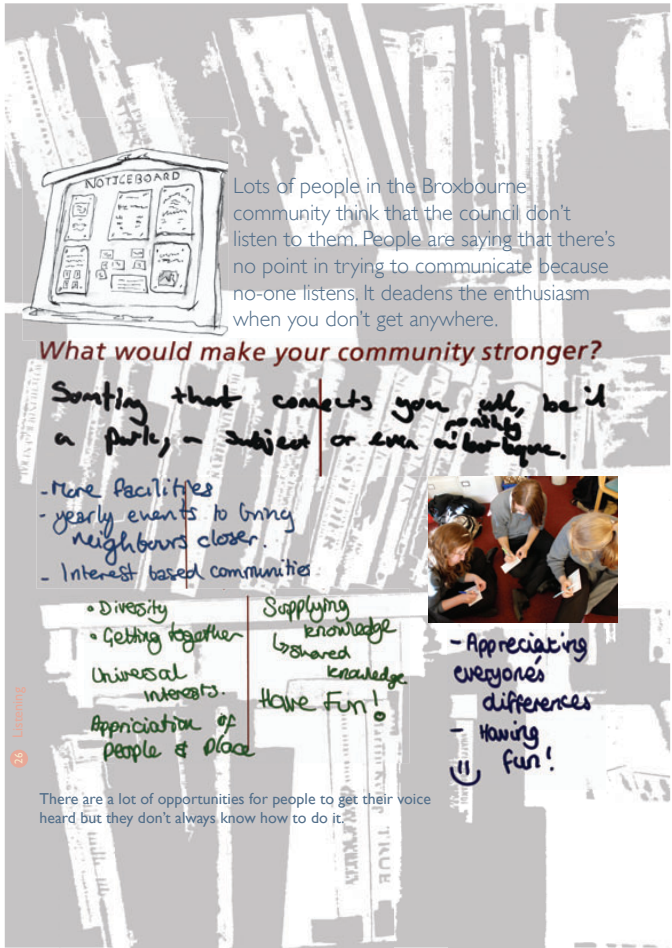 NOTICEBOARD
Lots of people in the Broxbourne
community think that the council don't
listen to them. People are saying that there's
no point in trying to communicate because
no-one listens. It deadens the enthusiasm
when you don't get anywhere.
What would make your community stronger?
Somting that connects you all, be it
a park, a subject or even a monthly
- More facilities
- yearly events to bring
neighbours closer.
- Interest based communities
• Diversity
• Getting together
Universal
interests.
Appriciation of
people & place
Supplying
knowledge
↳ shared
knowledge
Have Fun!
- Appreciating
everyone's
differences
- Having
fun!
26 Listening
There are a lot of opportunities for people to get their voice
heard but they don't always know how to do it.
TRUE